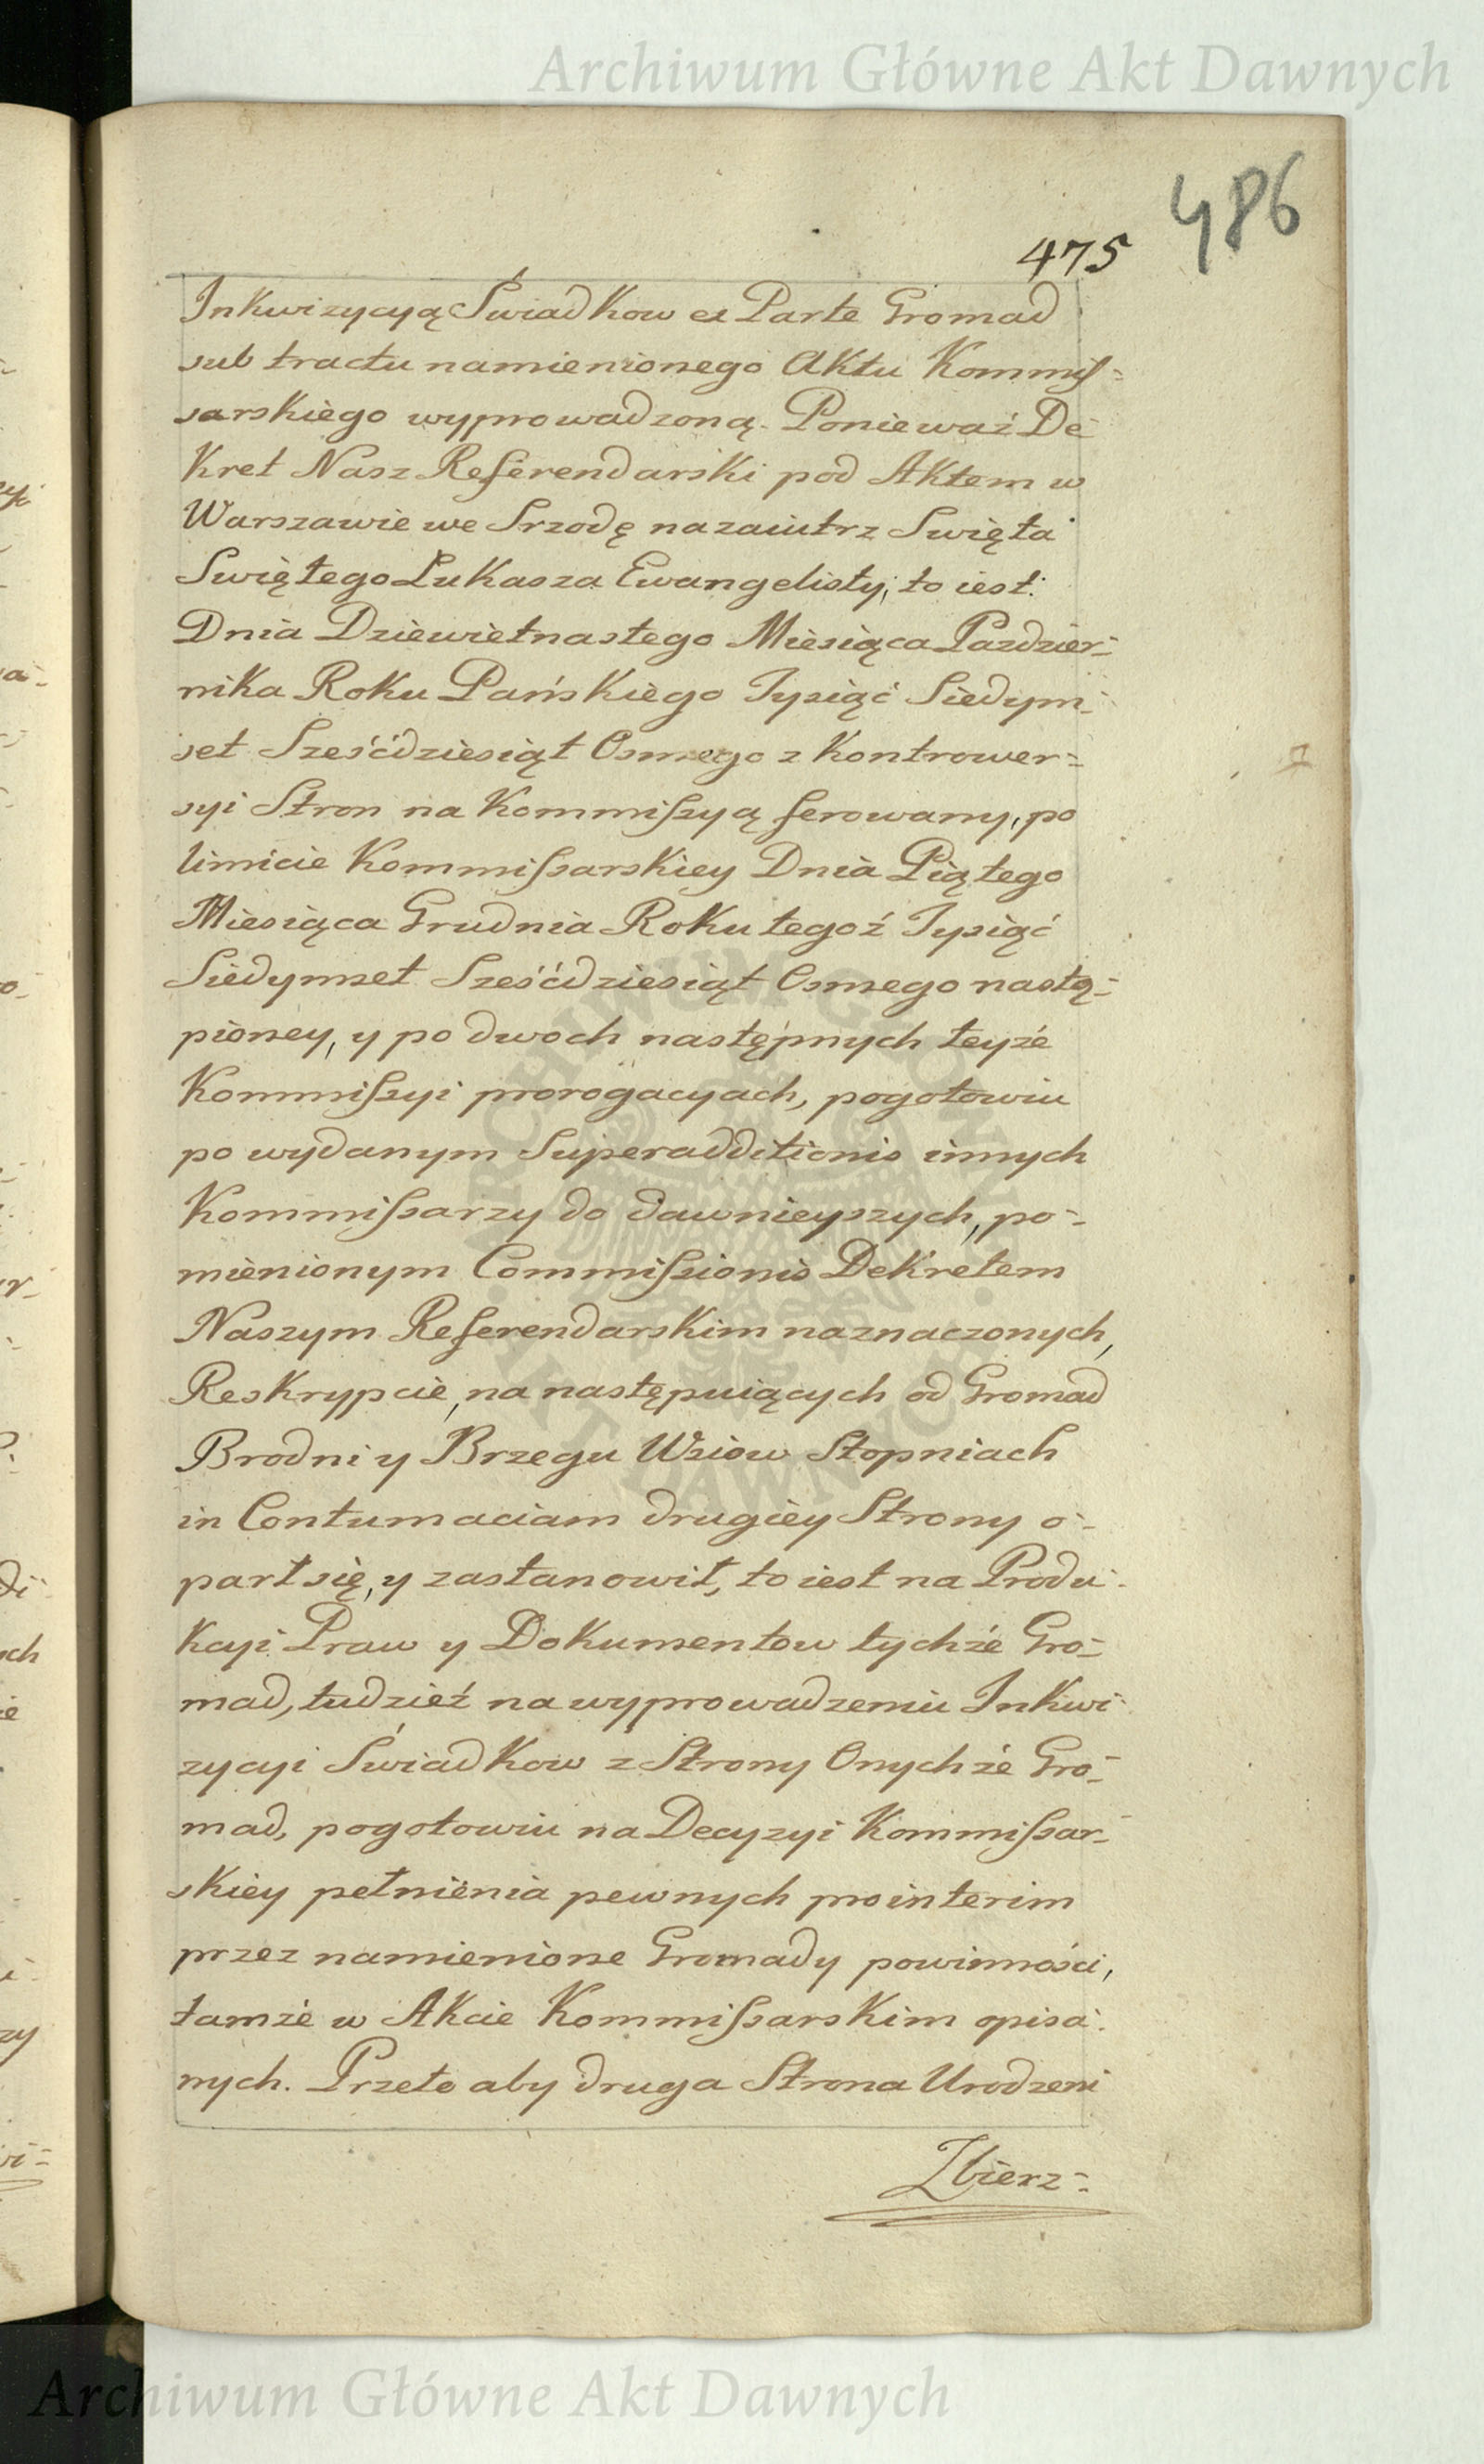 Archiwum Główne Akt Dawnych
486
475
Inkwizycyą Swiadkow ex Parte Gromad
sub tractu namienionego Aktu Kommis=
sarskiego wyprowadzoną. Ponieważ De-
kret Nasz Referendarski pod Aktem w
Warszawie we Srzodę nazaiutrz Swięta
Swiętego Łukasza Ewangelisty, to iest:
Dnia Dziewiętnastego Miesiąca Pazdzier=
nika Roku Pańskiego Tysiąć Siedym-
set Sześćdziesiąt Osmego z Kontrower=
syi Stron na Kommissyą ferowany, po
limicie Kommissarskiey Dnia Piątego
Miesiąca Grudnia Roku tegoż Tysiąć
Siedymset Sześćdziesiąt Osmego nastą=
pioney, y po dwoch następnych teyże
Kommissyi prorogacyach, pogotowiu
po wydanym Superadditionis innych
Kommissarzy do dawnieyszych, po-
mienionym Commissionis Dekretem
Naszym Referendarskim naznaczonych,
Reskrypcie, na następuiących od Gromad
Brodni y Brzegu Wsiow Stopniach
in Contumaciam drugiey Strony o-
parł się, y zastanowił, to iest na Produ-
kcyi Praw y Dokumentow tychże Gro=
mad, tudzież na wyprowadzeniu Inkwi-
zycyi Świadkow z Strony Onychże Gro=
mad, pogotowiu na Decyzyi Kommissar=
skiey pełnienia pewnych pro interim
przez namienione Gromady powinności,
tamże w Akcie Kommissarskim opisa-
nych. Przeto aby druga Strona Urodzeni
Zbierz-
Archiwum Główne Akt Dawnych